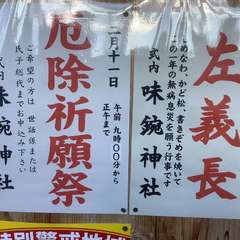 左義長
しめなわ、かど松、書きぞめを焼いて
この一年の無病息災を願う行事です
式内 味鋺神社
二月十一日
午前 九時〇〇分から
正午まで
厄除祈願祭
ご希望の方は 世話係または
氏子総代までお申込み下さい
式内 味鋺神社
特別警戒地域